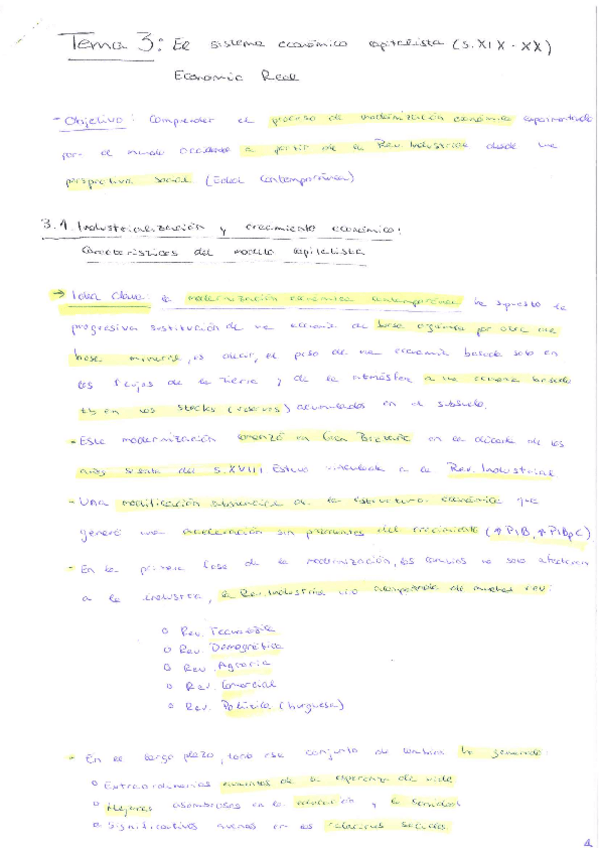 Tema 3: El sistema económico capitalista (S. XIX - XX)
Economía Real
- Objetivo: Comprender el proceso de modernización económica experimentado
por el mundo occidental a partir de la Rev. Industrial desde una
perspectiva social (Edad Contemporánea)
3.1. Industrialización y crecimiento económico:
Características del modelo capitalista
→ Idea clave: la modernización económica contemporánea ha supuesto la
progresiva sustitución de una economía de base agraria por otra de
base minera, es decir, el paso de una economía basada solo en
los flujos de la tierra y de la atmósfera a una economía basada
tb en los stocks (reservas) acumulados en el subsuelo.
- Esta modernización comenzó en Gran Bretaña en la década de los
años sesenta del S. XVIII. Estuvo vinculada a la Rev. Industrial
- Una modificación sustancial de la estructura económica que
generó una aceleración sin precedentes del crecimiento (↑PIB, ↑PIBpC)
- En la primera fase de la modernización, los cambios no solo afectaron
a la industria, la Rev. Industrial vino acompañada de muchas rev:
o Rev. Tecnológica
o Rev. Demográfica
o Rev. Agraria
o Rev. Comercial
o Rev. Política (burguesa)
- En el largo plazo, todo ese conjunto de cambios ha generado:
o Extraordinarios aumentos de la esperanza de vida
o Mejoras asombrosas en la educación y la sanidad
o Significativos avances en las relaciones sociales.
1